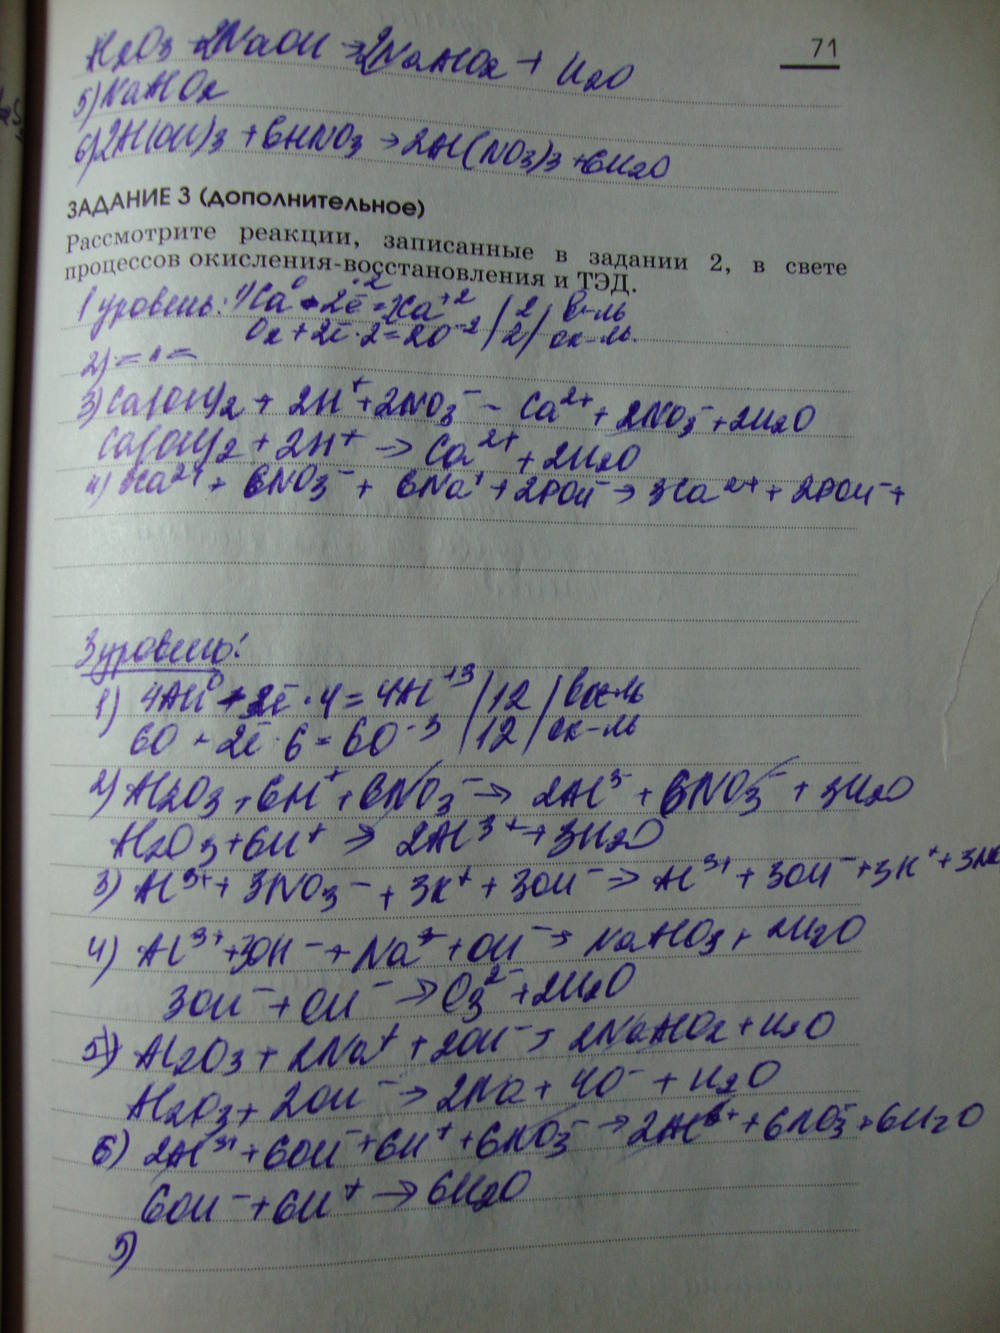 Al2O3 + 2NaOH → 2NaAlO2 + H2O
71
5) NaAlO2
6) 2Al(OH)3 + 6HNO3 → 2Al(NO3)3 + 6H2O
ЗАДАНИЕ 3 (дополнительное)
Рассмотрите реакции, записанные в задании 2, в свете
процессов окисления-восстановления и ТЭД.
1 уровень: 1) Ca⁰ - 2ē·2 = 2Ca⁺² | 2 | в-ль
O2 + 2ē·2 = 2O⁻² | 2 | ок-ль.
2) = " =
3) Ca(OH)2 + 2H⁺ + 2NO3⁻ - Ca²⁺ + 2NO3⁻ + 2H2O
Ca(OH)2 + 2H⁺ → Ca²⁺ + 2H2O
4) 3Ca²⁺ + 6NO3⁻ + 6Na⁺ + 2POH⁻ → 3Ca²⁺ + 2POH⁻ +
3 уровень:
1) 4Al⁰ - 3ē·4 = 4Al⁺³ | 12 | вос-ль
6O + 2ē·6 = 6O⁻³ | 12 | ок-ль
2) Al2O3 + 6H⁺ + 6NO3⁻ → 2Al³⁻ + 6NO3⁻ + 3H2O
Al2O3 + 6H⁺ → 2Al³⁺ + 3H2O
3) Al³⁺ + 3NO3⁻ + 3K⁺ + 3OH⁻ → Al³⁺ + 3OH⁻ + 3K⁺ +
4) Al³⁺ + 3OH⁻ + Na⁺ + OH⁻ → NaAlO3 + 2H2O
3OH⁻ + OH⁻ → O3²⁻ + 2H2O
5) Al2O3 + 2Na⁺ + 2OH⁻ → 2NaAlO2 + H2O
Al2O3 + 2OH⁻ → 2Na + 4O⁻ + H2O
6) 2Al³⁺ + 6OH⁻ + 6H⁺ + 6NO3⁻ → 2Al³⁺ + 6NO3⁻ + 6H2O
6OH⁻ + 6H⁺ → 6H2O
5)